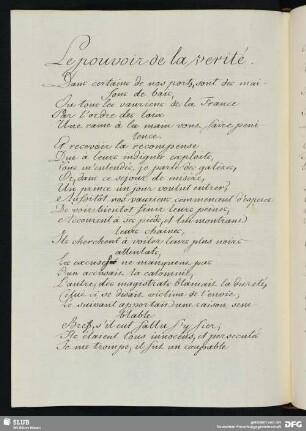 Le pouvoir de la verité.
Dans certains de nos ports, sont des mai-
sons de baie,
Où tous les vauriens de la France
Par l'ordre des loix
Une rame à la main vons, faire peni
tence.
Et recevoir la recompense
Due à leurs indignes exploits,
Vous m'entendez, je parle des galères,
Or, dans ce sejour de misère,
Un prince un jour voulut entrer;
Aussitôt nos vauriens commencent d'esperer
De voir bientôt finir leurs peines,
Accourent à ses pieds, et lui montrant
leurs chaines,
Ils cherchent à voiler leurs plus noirs
attentats,
Les excuses ne manquent pas
L'un accusait la calomnie,
L'autre, des magistrats blamait la dureté,
Celui ci se disait victime de l'envie,
Le suivant apportait une raison sem-
blable
Bref, s'il eut fallu s'y fier,
Ils étaient tous innocens, et persecutés
Je me trompe, il fut un coupable
SLUB
DFG